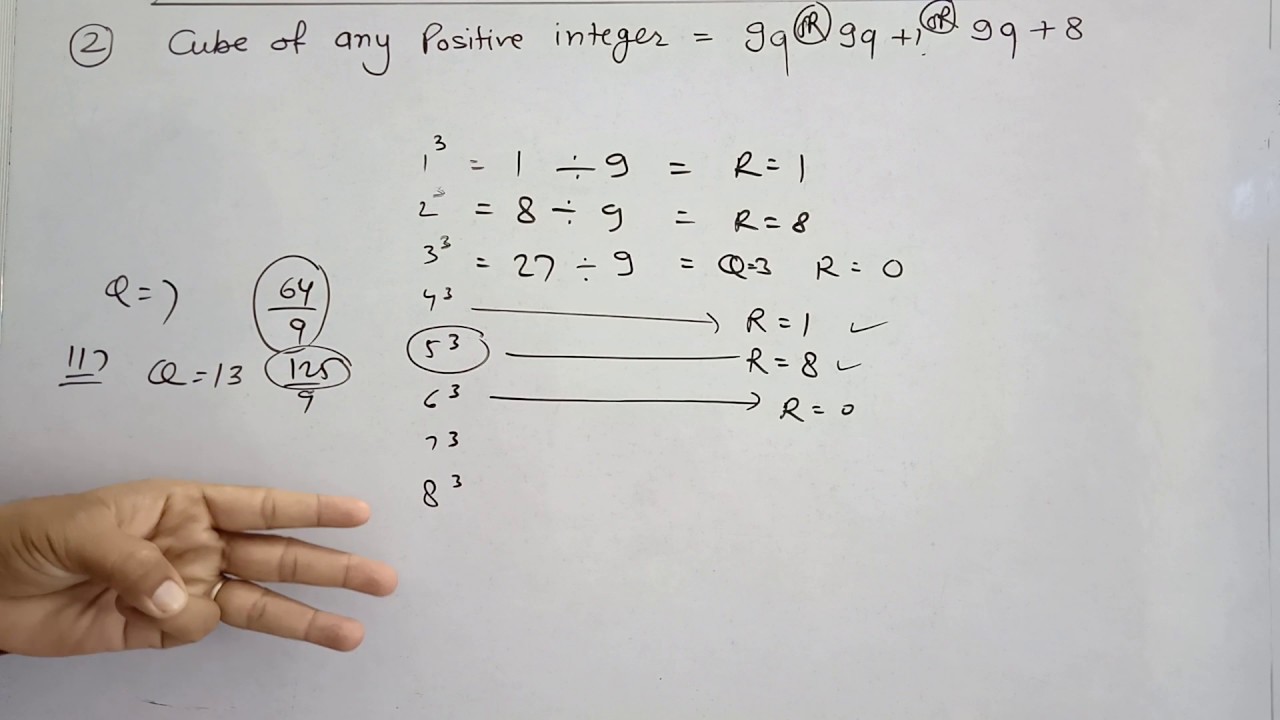 ② Cube of any Positive integer = 9q OR 9q + 1 OR 9q + 8
1³ = 1 ÷ 9 = R = 1
2³ = 8 ÷ 9 = R = 8
3³ = 27 ÷ 9 = Q=3 R = 0
4³ → R = 1 ✓
5³ — R = 8 ✓
6³ → R = 0
7³
8³
Q = 7 64/9
117 Q = 13 125/9